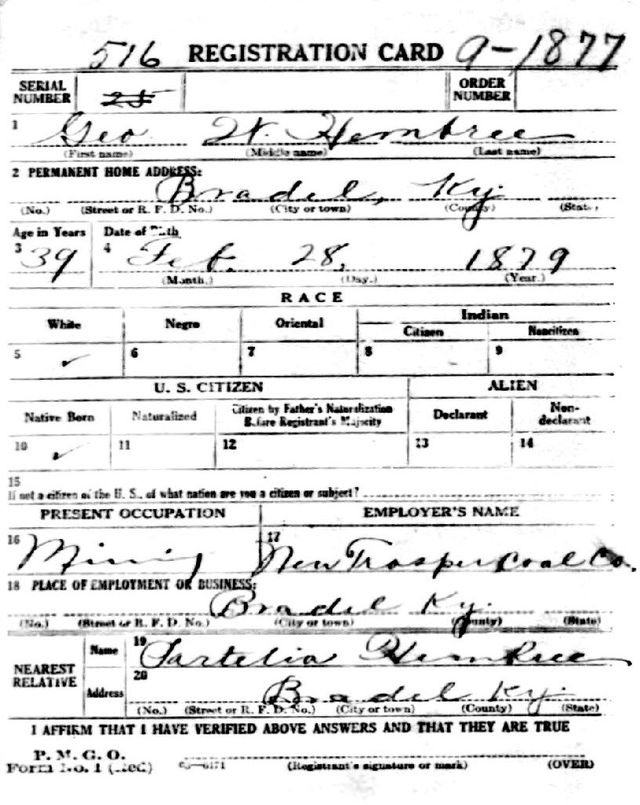 516 REGISTRATION CARD 9-1877
SERIAL NUMBER 25 ORDER NUMBER
1 Geo W. Hembree
(First name) (Middle name) (Last name)
2 PERMANENT HOME ADDRESS:
Bradel, Ky.
(No.) (Street or R. F. D. No.) (City or town) (County) (State)
Age in Years Date of Birth
3 39 4 Feb. 28, 1879
(Month.) (Day.) (Year.)
RACE
White Negro Oriental Indian
Citizen Noncitizen
5 ✓ 6 7 8 9
U. S. CITIZEN ALIEN
Native Born Naturalized Citizen by Father's Naturalization Before Registrant's Majority Declarant Non-declarant
10 ✓ 11 12 13 14
15
If not a citizen of the U. S., of what nation are you a citizen or subject?
PRESENT OCCUPATION EMPLOYER'S NAME
16 Mining 17 New Trosper Coal Co.
18 PLACE OF EMPLOYMENT OR BUSINESS:
Bradel Ky.
(No.) (Street or R. F. D. No.) (City or town) (County) (State)
NEAREST RELATIVE
Name 19 Hembree
Address 20 Bradel Ky.
(No.) (Street or R. F. D. No.) (City or town) (County) (State)
I AFFIRM THAT I HAVE VERIFIED ABOVE ANSWERS AND THAT THEY ARE TRUE
P. M. G. O.
Form No. 1 (Red) 03—6171 (Registrant's signature or mark) (OVER)